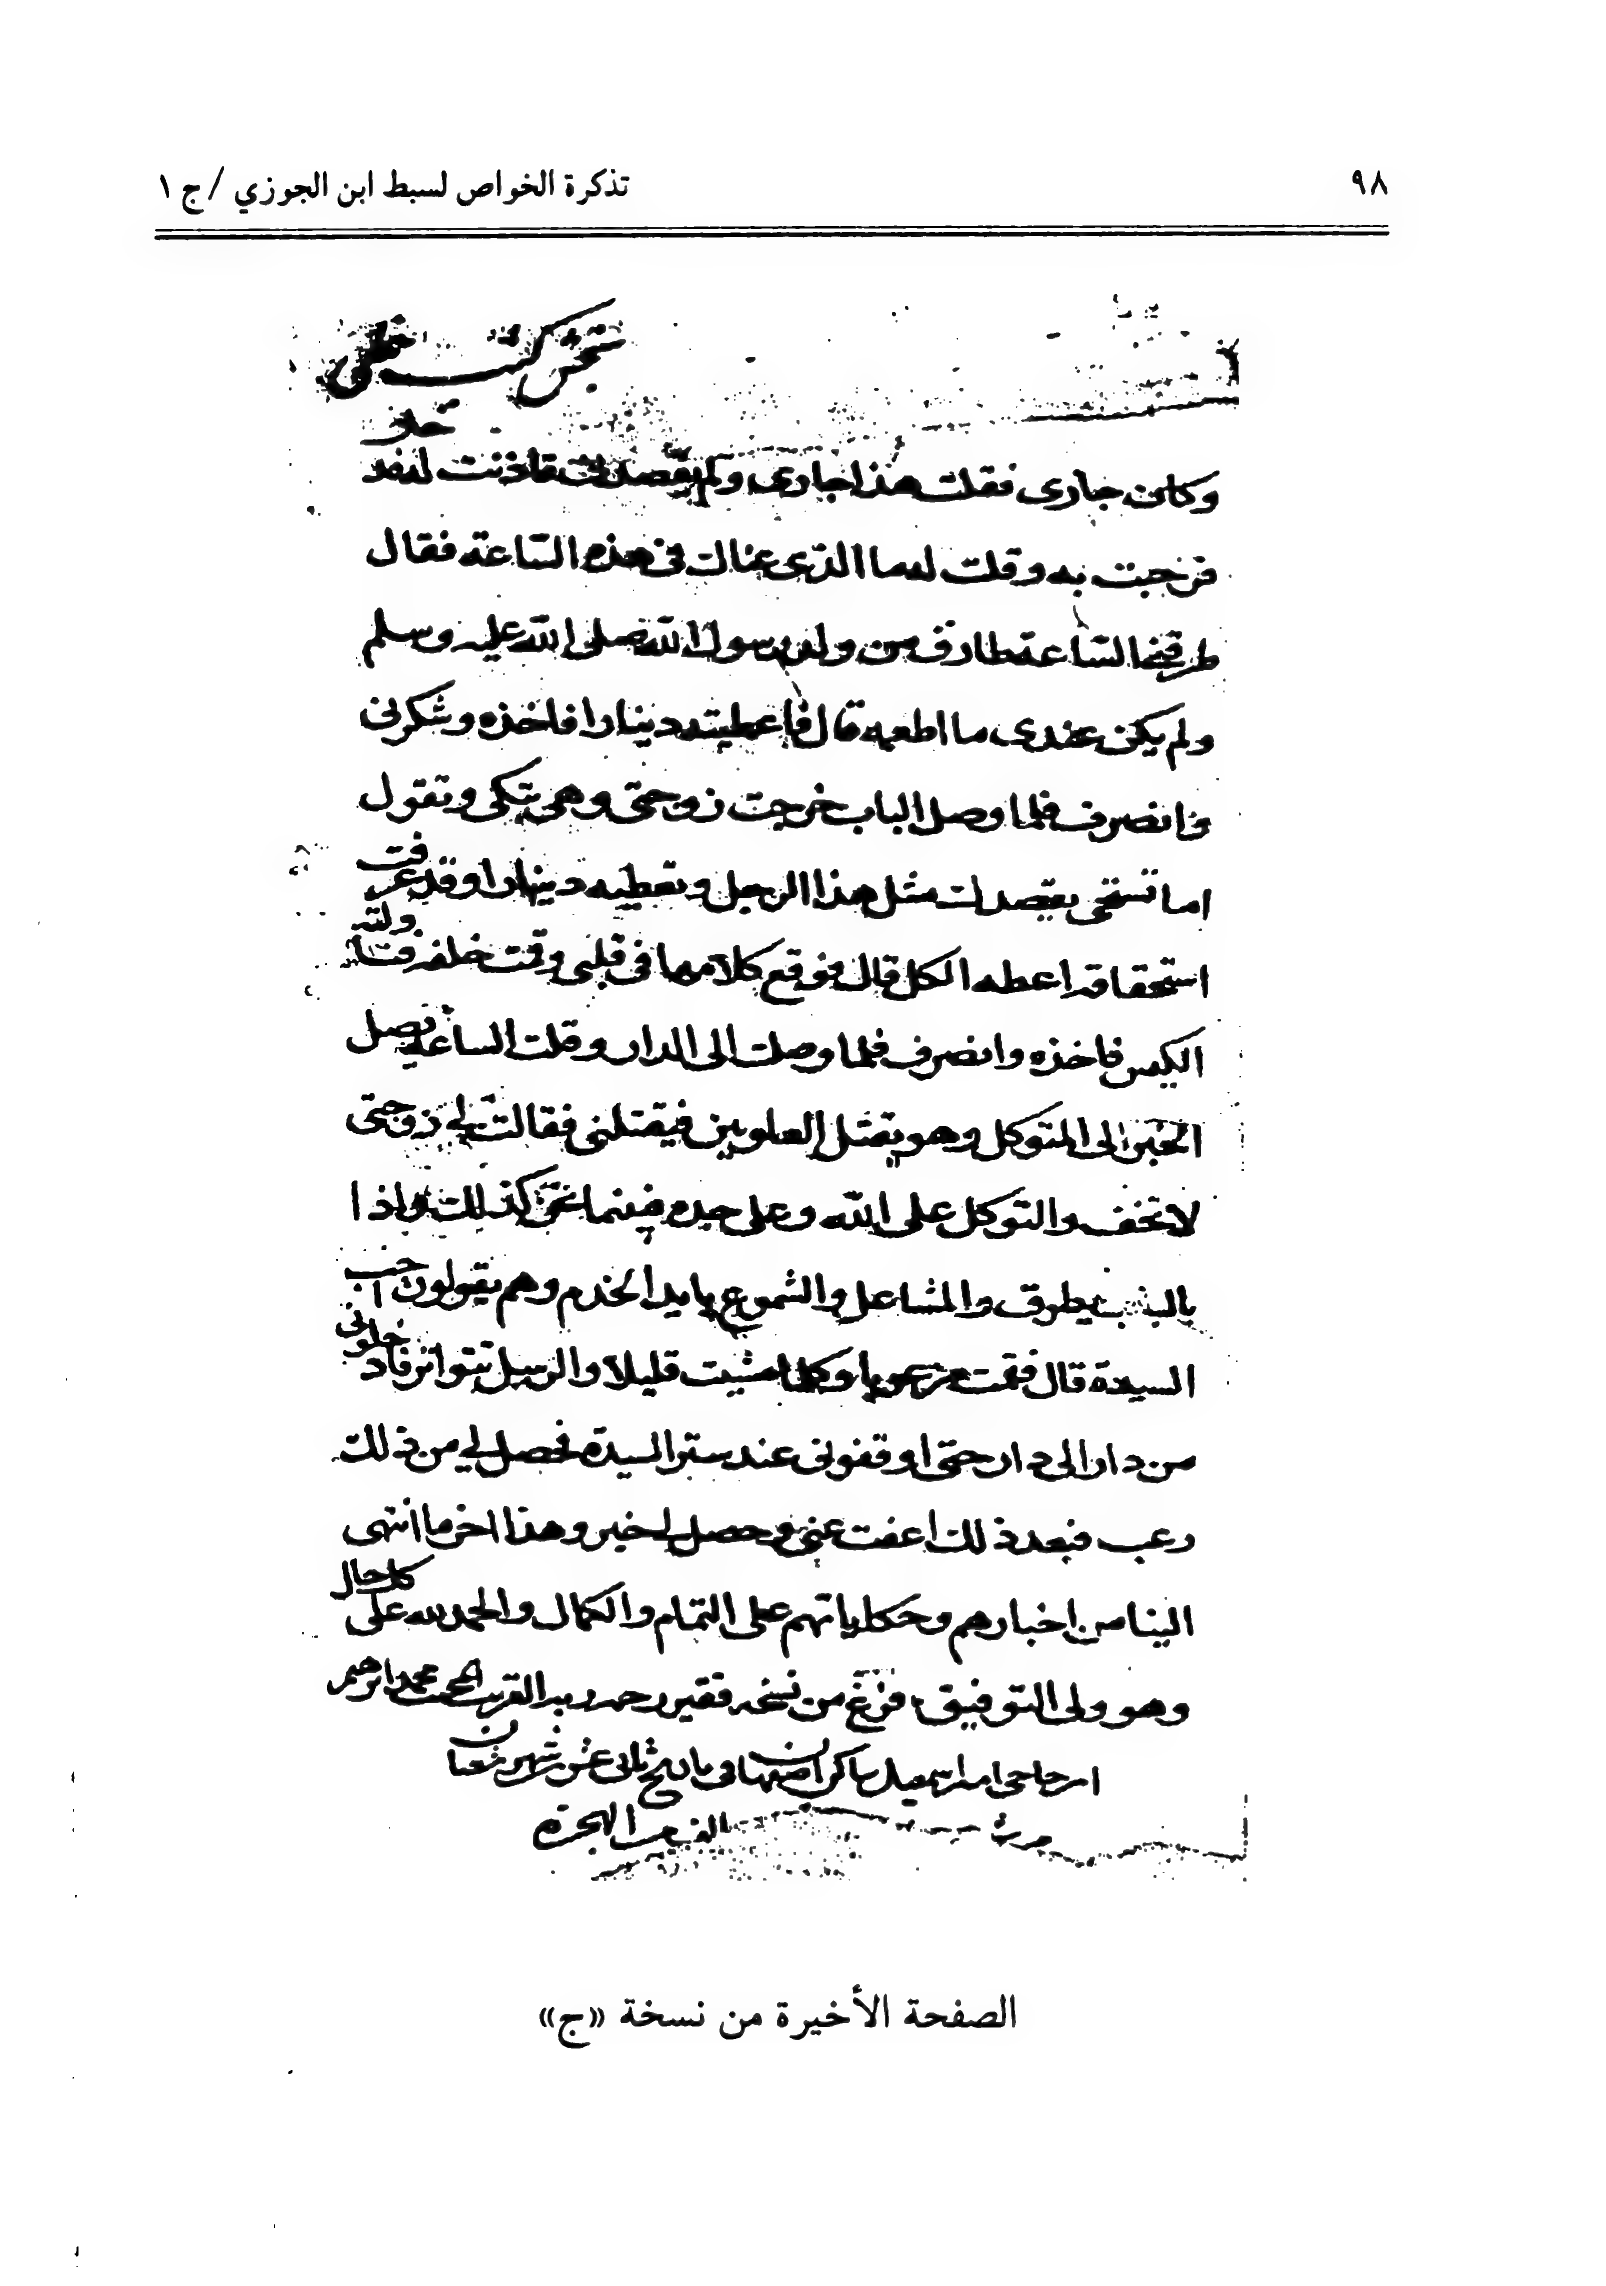 ٩٨
تذكرة الخواص لسبط ابن الجوزي / ج ١
بخش كتب خطى
وكان جارى فقلت هذا جارى ولم يقصدنى فاذنت له فدخل
فرحبت به وقلت له ما الذى عناك فى هذه الساعة فقال
طرقنى الساعة طارق من ولد رسول الله صلى الله عليه وسلم
ولم يكن عندى ما اطعمه قال فاعطيته دينارا فاخذه وشكرنى
وانصرف فلما وصل الباب خرجت زوجتى وهى تبكى وتقول
اما تستحى يقصدك مثل هذا الرجل وتعطيه دينارا وقد عرفت
استحقاقه اعطه الكل قال فوقع كلامها فى قلبى وقمت خلفه فناولته
الكيس فاخذه وانصرف فلما وصلت الى الدار وقلت الساعة يصل
الخبر الى المتوكل وهو يقتل العلويين فيقتلنى فقالت لى زوجتى
لا تخف والتوكل على الله وعلى جده فبينما نحن كذلك واذا
بالباب يطرق والمشاعل والشموع بايد الخدم وهم يقولون اجب
السيدة قال فقمت مرعوبا وكلما مشيت قليلا والرسل تتواتر فادخلونى
من دار الى دار حتى اوقفونى عند ستر السيدة فحصل لى من ذلك
رعب فبعد ذلك اعفت عنى وحصل لى خير وهذا اخر ما انتهى
الينا من اخبارهم وحكاياتهم على التمام والكمال والحمد لله على كل حال
وهو ولى التوفيق فرغ من نسخه فقير رحمه ربه القريب محمد ابرهيم
ساكن اصفهان فى تاريخ ثانى عشر شهر شعبان
الف من الهجرة
الصفحة الأخيرة من نسخة «ج»